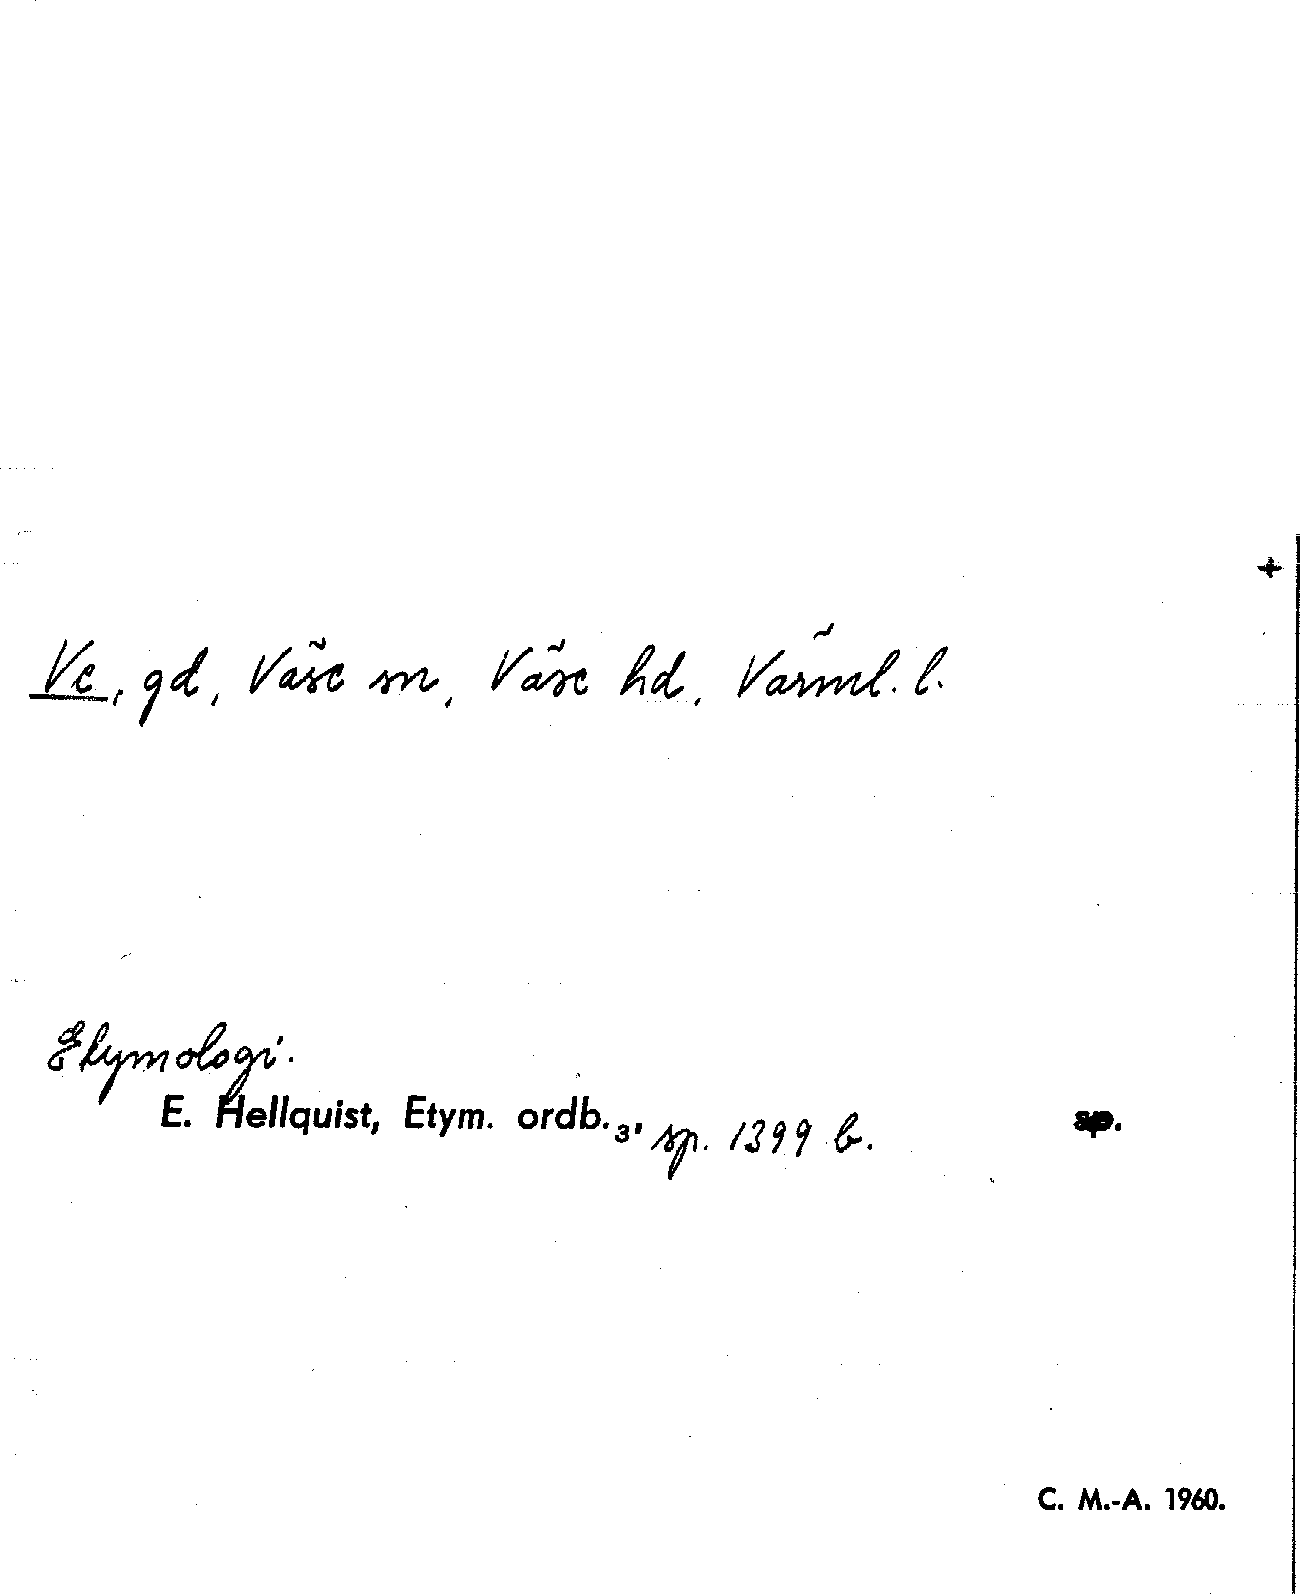 +
Ve, gd, Väse sn, Väse hd, Värml. l.
Etymologi.
E. Hellquist, Etym. ordb.₃, sp. 1399 b. sp.
C. M.-A. 1960.